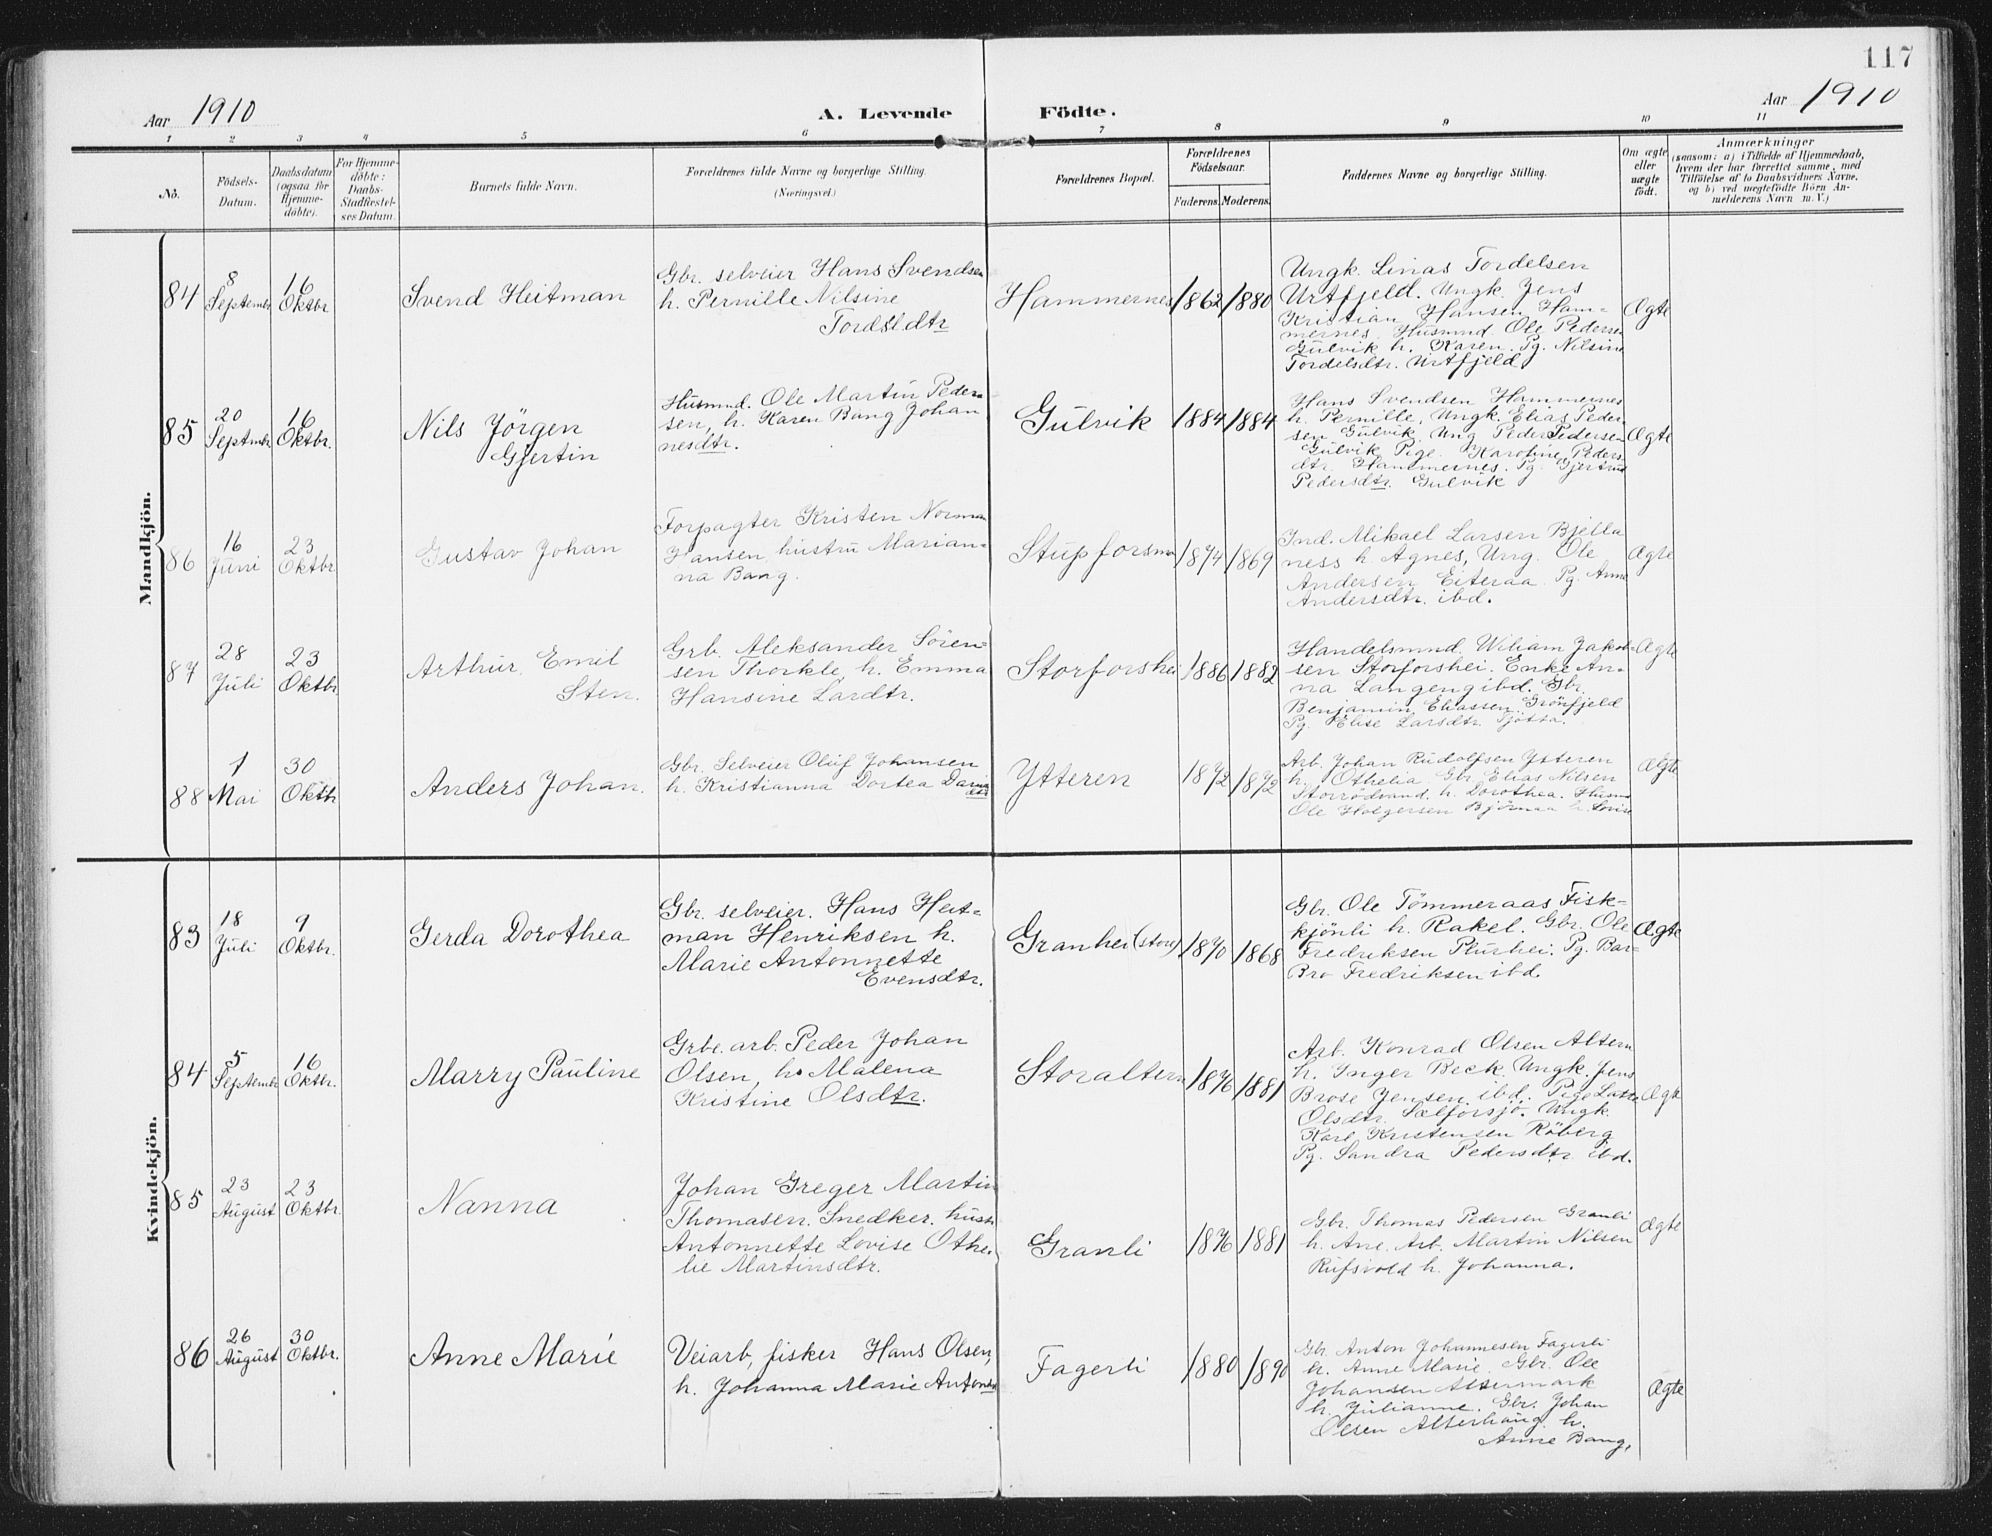 117
Aar 1910
A. Levende Födte.
Aar 1910
1 2 3 4 5 6 7 8 9 10 11
No.
Födsels-
Datum.
Daabsdatum
(ogsaa for
Hjemme-
döbte).
For Hjemme-
döbte:
Daabs-
Stadfæstel-
ses Datum.
Barnets fulde Navn.
Forældrenes fulde Navne og borgerlige Stilling.
(Næringsvei.)
Forældrenes Bopæl.
Forældrenes
Födselsaar.
Faderens. Moderens.
Faddernes Navne og borgerlige Stilling.
Om ægte
eller
uægte
födt.
Anmærkninger
(saasom: a) i Tilfælde af Hjemmedaab,
hvem der har forrettet samme, med
Tilföielse af to Daabsvidners Navne,
og b) ved uægtefödte Börn An-
melderens Navn m. V.)
Mandkjön.
84
8
Septembr
16
Oktbr
Svend Heitman
Gbr. selveier Hans Svendsen
h. Pernille Nilsine
Tordsldtr
Hammernes
1862
1880
Ungk. Linas Tordelsen
Urtfjeld. Ungk. Jens
Kristian Hansen Ham-
mernes, Husmnd Ole Pedersen
Gulvik h. Karen. Pg. Nilsine
Tordelsdtr. Urtfjeld
Ægte
85
20
Septmbr
16
Oktbr.
Nils Jörgen
Gjertin
Husmnd. Ole Martin Peder-
sen, h. Karen Bang Johan
nesdtr.
Gulvik
1884
1884
Hans Svendsen Hammernes
h. Pernille, Ungk. Elias Peder-
sen Gulvik, Ung Peder Pedersen
Gulvik Pige Karoline Peders
dtr. Hammernes. Pg. Gjertrud
Pedersdtr. Gulvik
Ægte
86
16
Juni
23
Oktbr
Gustav Johan
Forpagter Kristen Norman
Hansen, hustru Marian-
na Bang.
Stupforsmo
1874
1869
Ind. Mikael Larsen Bjella
ness h. Agnes, Ung. Ole
Andersen Eiteraa. Pg. Anne
Andersdtr. ibd.
Ægte
87
28
Juli
23
Oktbr
Arthur Emil
Sten.
Grb. Aleksander Sören-
sen Thorkle, h. Emma
Hansine Lardtr.
Storforshei
1886
1882
Handelsmnd. Wiliam Jakob-
sen Storforshei. Enke An-
na Langeng ibd. Gbr.
Benjamin Eliassen Grönfjeld
Pg. Elise Larsdtr. Tjötta.
Ægte
88
1
Mai
30
Oktbr
Anders Johan.
Gbr. Selveier Oluf Johansen
h. Kristianna Dortea Daniels
dtr
Ytteren
1872
1872
Arb. Johan Rudolfsen Ytteren
h. Othelia, Gbr. Elias Nilsen
Storrödvand h. Dorothea. Husmd
Ole Holgersen Björnaa h. Lovise
Ægte
Kvindekjön.
83
18
Juli
9
Oktbr.
Gerda Dorothea
Gbr. selveier. Hans Heit-
man Henriksen h.
Marie Antonnette
Evensdtr.
Granhei (store)
1870
1868
Gbr. Ole Tömmeraas Fisk-
kjönli h. Rakel. Gbr. Ole
Fredriksen Plurhei. Pg. Bar-
bro Fredriksen ibd.
Ægte
84
5
Septembr
16
Oktbr.
Marry Pauline
Grbe. arb. Peder Johan
Olsen, h. Malena
Kristine Olsdtr.
Storaltern
1876
1881
Arb. Konrad Olsen Altern
h. Inger Beck. Ungk. Jens
Brose Jensen ibd. Pige
Olsdtr. Ungk.
Karl Kristensen Röberg
Pg. Sandra Pedersdtr. ibd.
Ægte
85
23
August
23
Oktbr.
Nanna
Johan Greger Martin
Thomasen. Snedker. hustr
Antonnette Lovise Othe-
lie Martinsdtr.
Granli
1876
1881
Gbr. Thomas Pedersen Granli
h. Ane. Arb. Martin Nilsen
Rufsvold h. Johanna.
Ægte
86
26
August
30
Oktbr.
Anne Marie
Veiarb, fisker Hans Olsen,
h. Johanna Marie Antonsd
Fagerli
1880
1890
Gbr. Anton Johannesen Fagerli
h. Anne Marie. Gbr. Ole
Johansen Altermark
h. Julianne. Gbr. Johan
Olsen Alterhaug. h.
Anne Bang,
Ægte